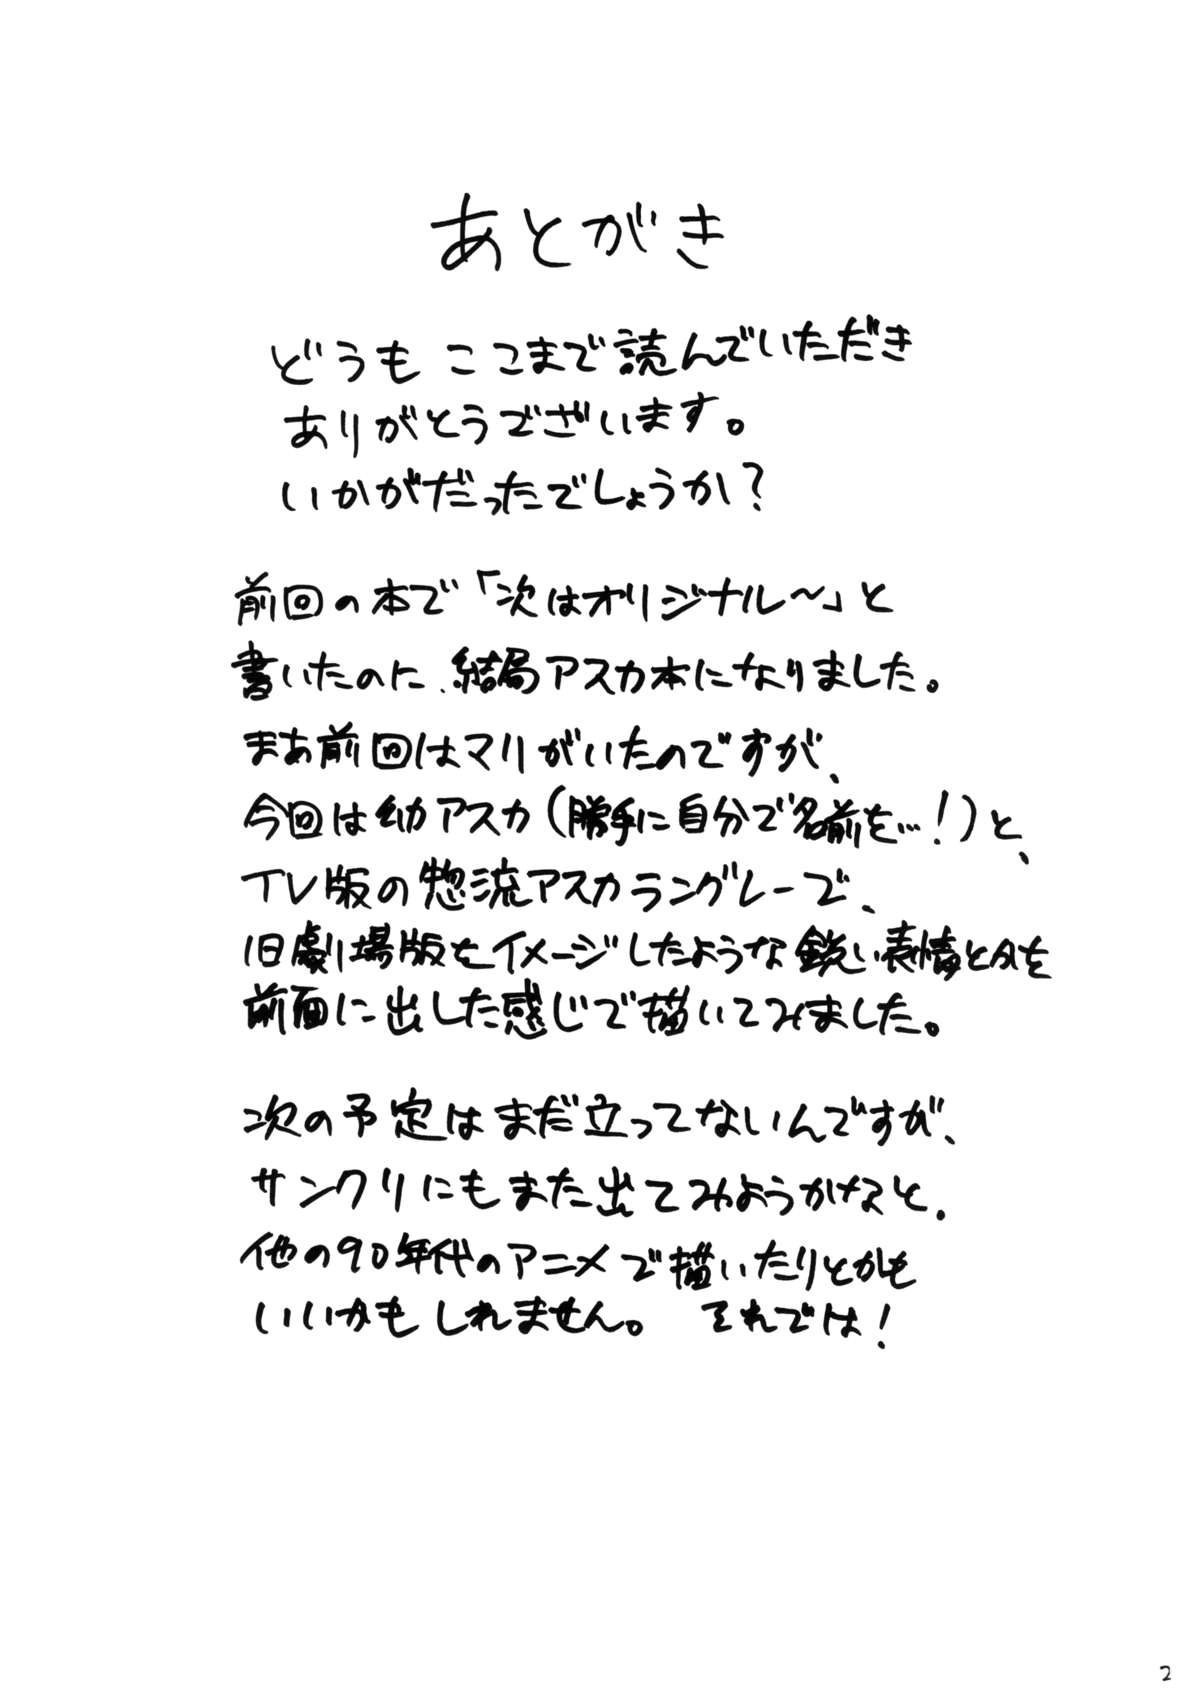 あとがき
どうも ここまで読んでいただき
ありがとうございます。
いかがだったでしょうか?
前回の本で「次はオリジナル〜」と
書いたのに、結局アスカ本になりました。
まあ前回はマリがいたのですが、
今回は幼アスカ(勝手に自分で名前を…!)と、
TV版の惣流アスカラングレーで、
旧劇場版をイメージしたような鋭い表情とかを
前面に出した感じで描いてみました。
次の予定はまだ立ってないんですが、
サンクリにもまた出てみようかなと.
他の90年代のアニメで描いたりとかも
いいかもしれません。 それでは!
2